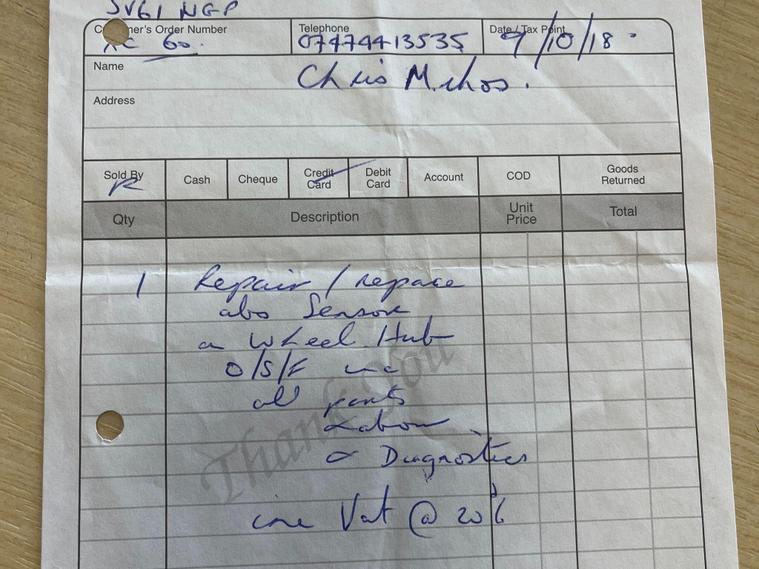 SV61 NGP
Customer's Order Number Telephone Date / Tax Point
XC 60. 07474413535 9/10/18.
Name Chris
Address
Sold By Cash Cheque Credit Card Debit Card Account COD Goods Returned
Qty Description Unit Price Total
1 Repair / repace
abs Sensor
a Wheel Hub
O/S/F inc
all parts
Labour
a Diagnostics
Thank You
inc Vat @ 20%